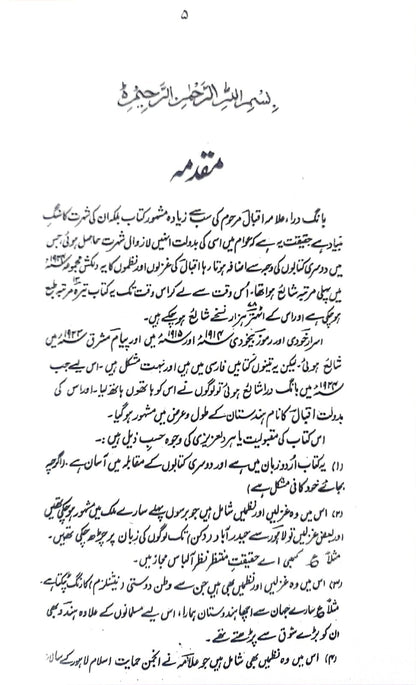 ۵
بِسْمِ اللہِ الرَّحْمٰنِ الرَّحِیْمِ ۝
مقدمہ
بانگ درا، علامہ اقبال مرحوم کی سب سے زیادہ مشہور کتاب بلکہ ان کی شہرت کا سنگِ
بنیاد ہے حقیقت یہ ہے کہ عوام میں اسی کی بدولت انہیں لازوال شہرت حاصل ہوئی جس
میں دوسری کتابوں کی وجہ سے اضافہ ہوتا رہا اقبال کی غزلوں اور نظموں کا یہ دلکش مجموعہ ۱۹۲۴ء
میں پہلی مرتبہ شائع ہوا تھا۔ اُس وقت سے لے کر اس وقت تک یہ کتاب تیرہ مرتبہ طبع
ہو چکی ہے اور اس کے ہزار نسخے شائع ہو چکے ہیں۔
اسرار خودی اور رموز بیخودی ۱۹۱۴ء اور ۱۹۱۵ء میں اور پیام مشرق ۱۹۲۲ء میں
شائع ہوئی۔ لیکن یہ تینوں کتابیں فارسی میں ہیں اور بہت مشکل ہیں۔ اس لیے جب
۱۹۲۴ء میں بانگ درا شائع ہوئی تو لوگوں نے اس کو ہاتھوں ہاتھ لیا۔ اور اس کی
بدولت اقبال کا نام ہندستان کے طول و عرض میں مشہور ہو گیا۔
اس کتاب کی مقبولیت یا ہر دلعزیزی کی وجوہ حسب ذیل ہیں:۔
(۱) یہ کتاب اُردو زبان میں ہے اور دوسری کتابوں کے مقابلہ میں آسان ہے۔ (اگرچہ
بجائے خود کافی مشکل ہے)
(۲) اس میں وہ غزلیں اور نظمیں شامل ہیں جو برسوں پہلے سارے ملک میں مشہور ہو چکی تھیں
اور بعض غزلیں تو لاہور سے حیدرآباد (دکن) تک لوگوں کی زبان پر چڑھ چکی تھیں۔
مثلاً ع کبھی اے حقیقتِ منتظر نظر آ لباس مجاز میں۔
(۳) اس میں وہ غزلیں اور نظمیں بھی ہیں جن سے وطن دوستی (نیشنلزم) کا رنگ ٹپکتا ہے۔
مثلاً ع سارے جہاں سے اچھا ہندستان ہمارا، اس لیے مسلمانوں کے علاوہ ہندو بھی
ان کو بڑے شوق سے پڑھتے تھے۔
(۴) اس میں وہ نظمیں بھی شامل ہیں جو علامہ نے انجمن حمایت اسلام لاہور کے سالانہ